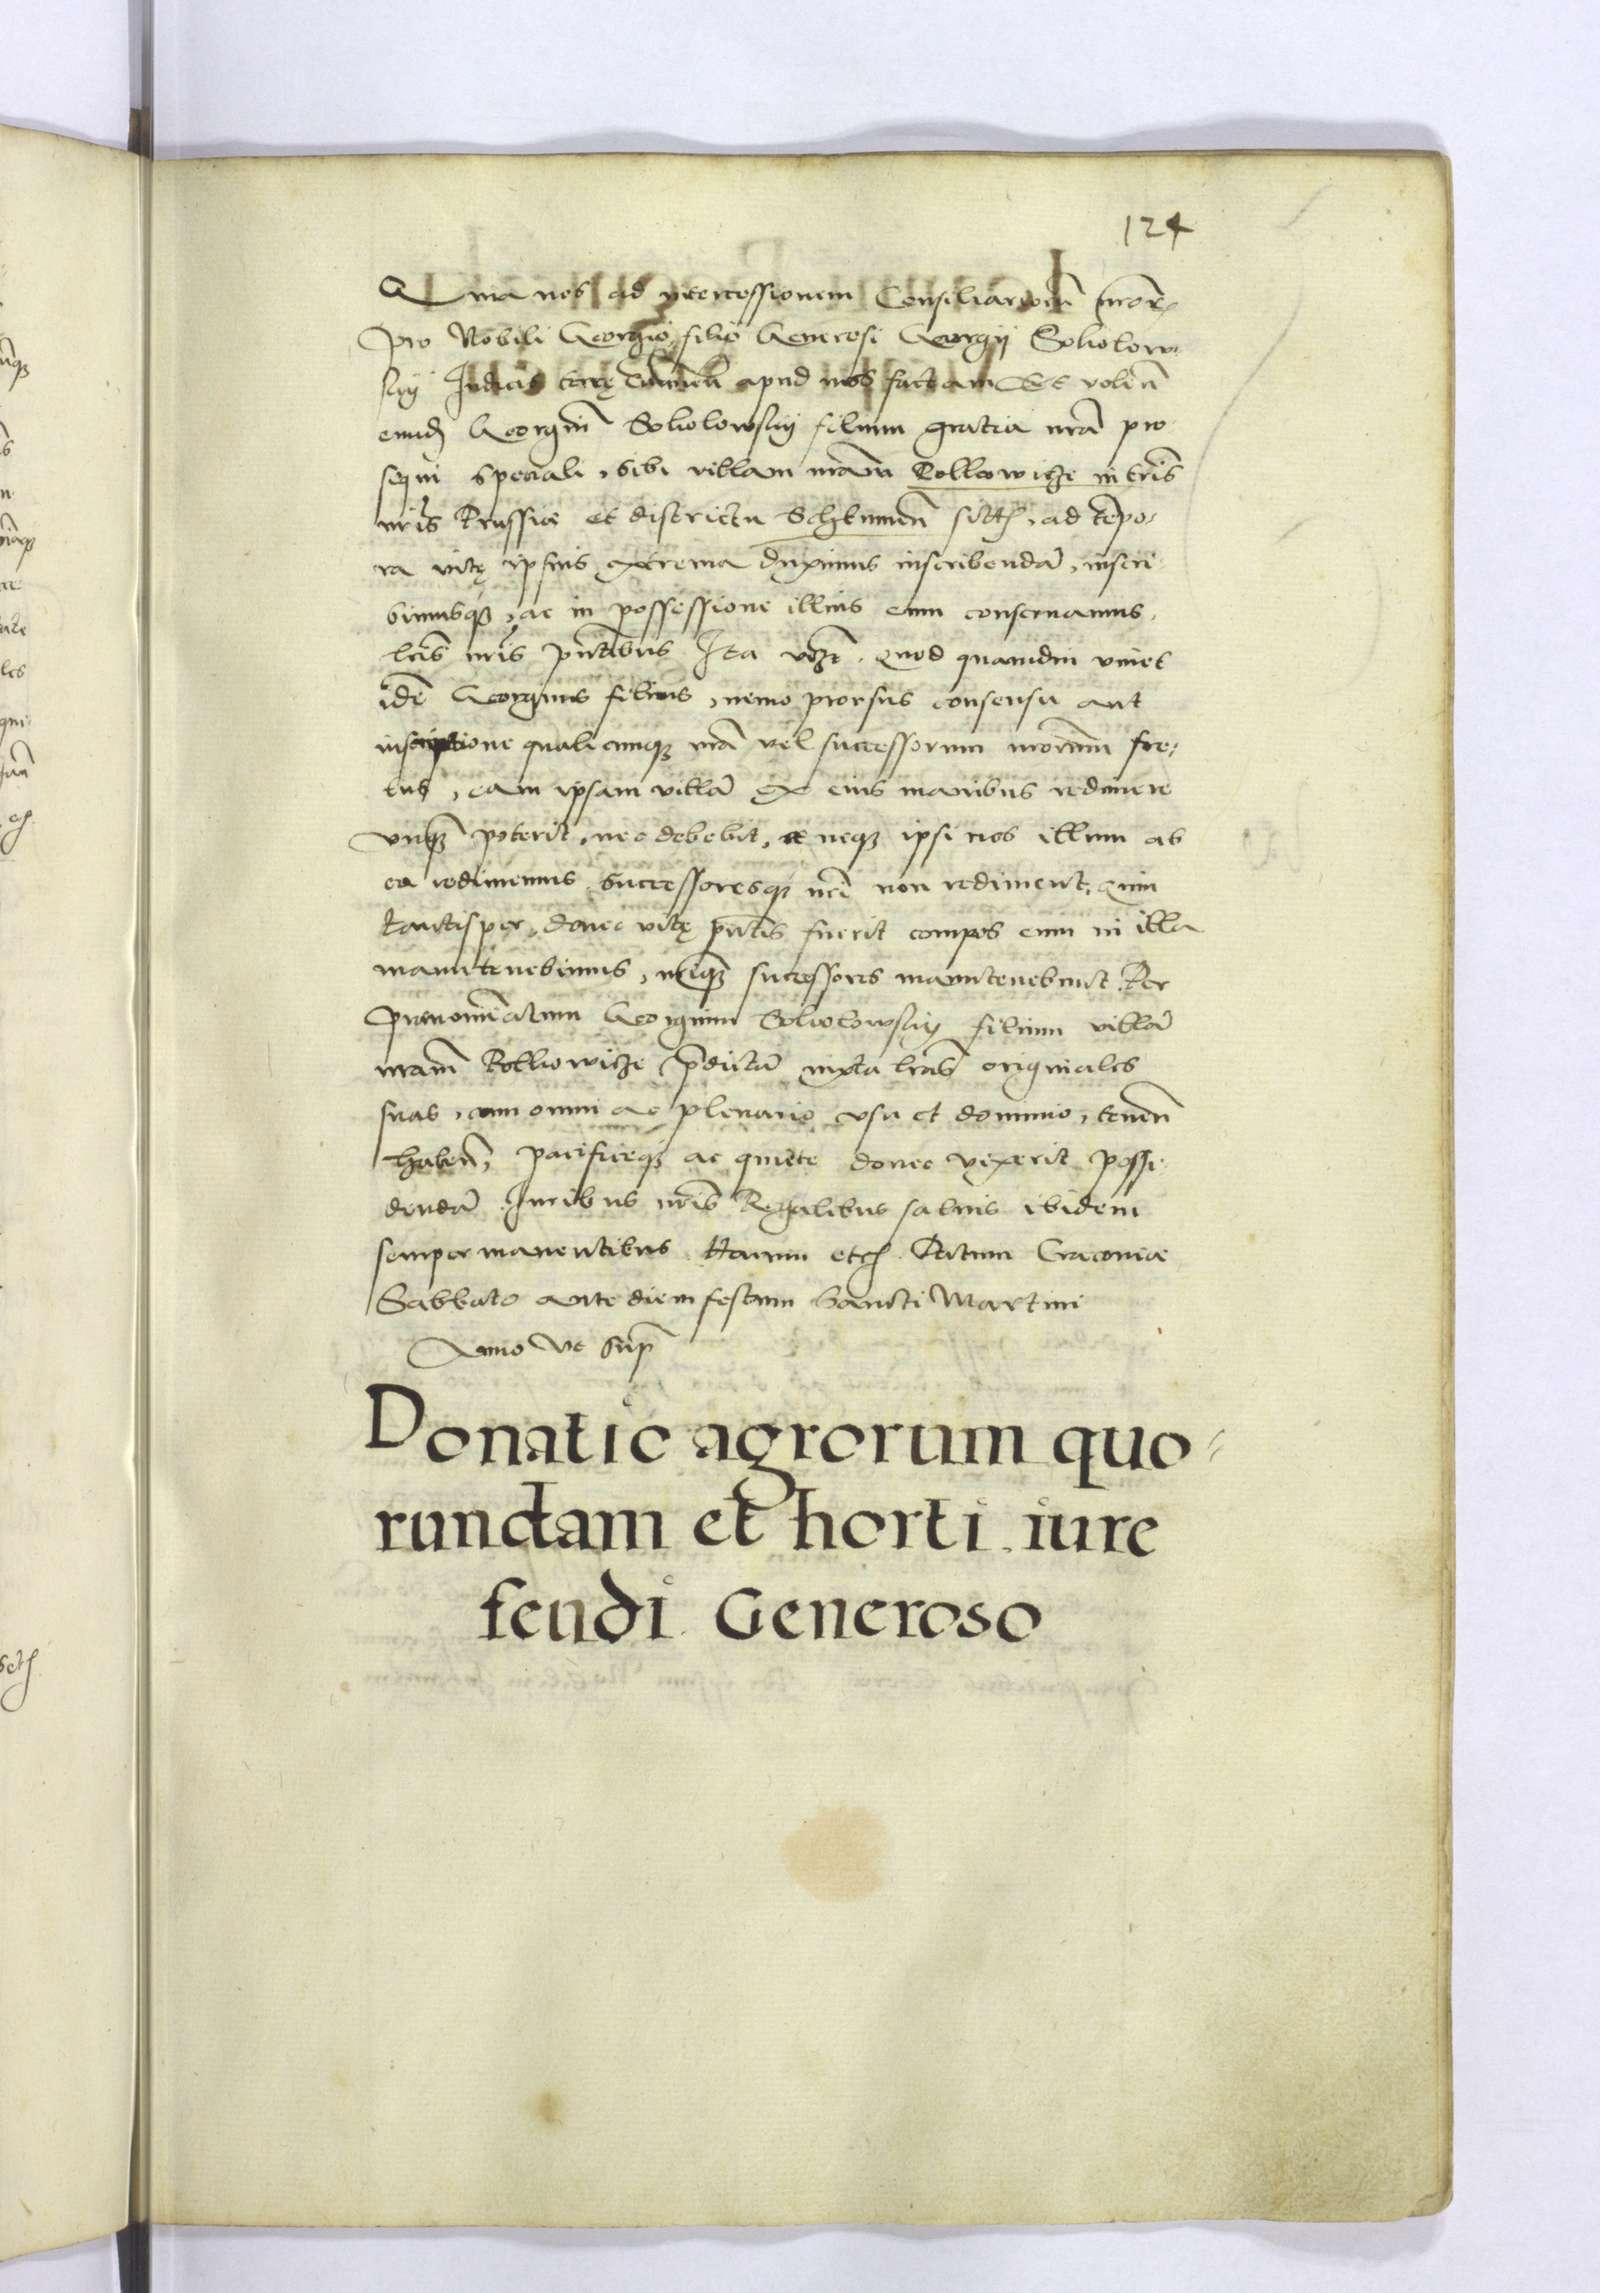 124
Quia nos ad intercessionem Consiliariorū nror
pro Nobili Georgio filio Generosi Georgij Sokolow
skij Judicis terrę Culmeñ apud nos factam Et voleñ
eund Georgiū Sokolowskij filium gratia nrā pro
sequi speciali, sibi villam nrām in tris
nris Prussiæ et districtu sitā, ad tēpo
ra vitę ipsius extrema duximus inscribendā, inscri
bimusq, ac in possessione illius eum conseruamus,
lris nris pñtibus Ita vcz, quod quamdiu viuet
idē Georgius filius, nemo prorsus consensu aut
inscriptione qualicunq nrā vel successorum nrorum fre
tus, eam ipsam villā ex eius manibus redimere
vnq poterit, nec debebit, neq ipsi nos illum ab
ea redimemus Successoresq nri non rediment, quin
tantisper, donec vitę pñtis fuerit compos eum in illa
manutenebimus, nriq successores manutenebunt Per
prænominatum Georgium Sokolowskij filium villā
nrām prędictā iuxta lras originales
suas, cum omni ac plenario vsu et dominio, teneñ
habeñ, pacificeq ac quiete donec vixerit possi
dendā Juribus nris Regalibus saluis ibidem
semper manentibus Harum etc Datum Cracouiæ
Sabbato ante diem festum Sancti Martini
Anno vt supr
Donatio agrorum quo
rundam et horti iure
feudi Generoso